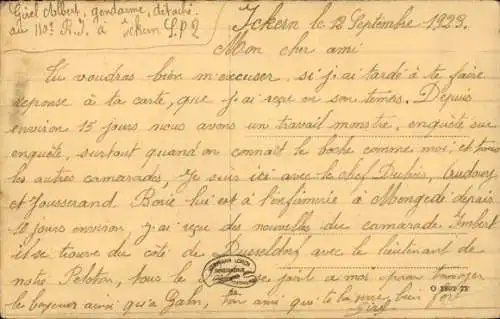 Girel Albert, gendarme, détaché
au 110e R.I. à Ickern S.P.2
Ickern le 12 Septembre 1923.
Mon cher ami
Tu voudras bien m'excuser, si j'ai tardé à te faire
reponse à ta carte, que j'ai reçu en son temps. Depuis
environ 15 jours nous avons un travail monstre, enquête sur
enquête, surtout quand on connait le boche comme moi, et tous
les autres camarades, Je suis ici avec le chef Dubois,
et Jousserand. Borie lui est à l'infirmerie à Mengede depuis
10 jours environ, j'ai reçu des nouvelles du camarade Imbert
il se trouve du côté de Dusseldorf avec le lieutenant de
notre Peloton, tous les joint à moi pour t'envoyer
le bonjour ainsi qu'à Gahn, ton ami qui te la serre bien fort
Girel